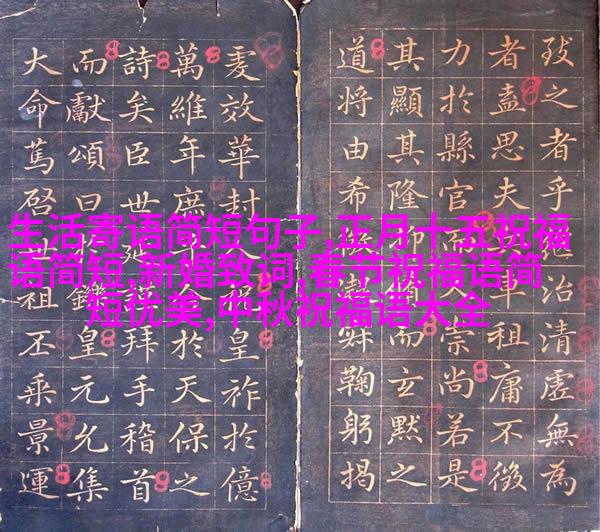 致之者乎治清虛無為
者盍思夫車租庸不徵
力於縣官而崇尚若是
其顯其隆仰而玄默之
道將由希鞠躬揭
效華封皇祚於億
萬維年庶於天保之
詩矣臣世拜手稽首
而獻頌曰皇元允集
大命篤啓世祖丕乘景運
生活寄语简短句子,正月十五祝福
语简短,新婚致词,春节祝福语简
短优美,中秋祝福语大全